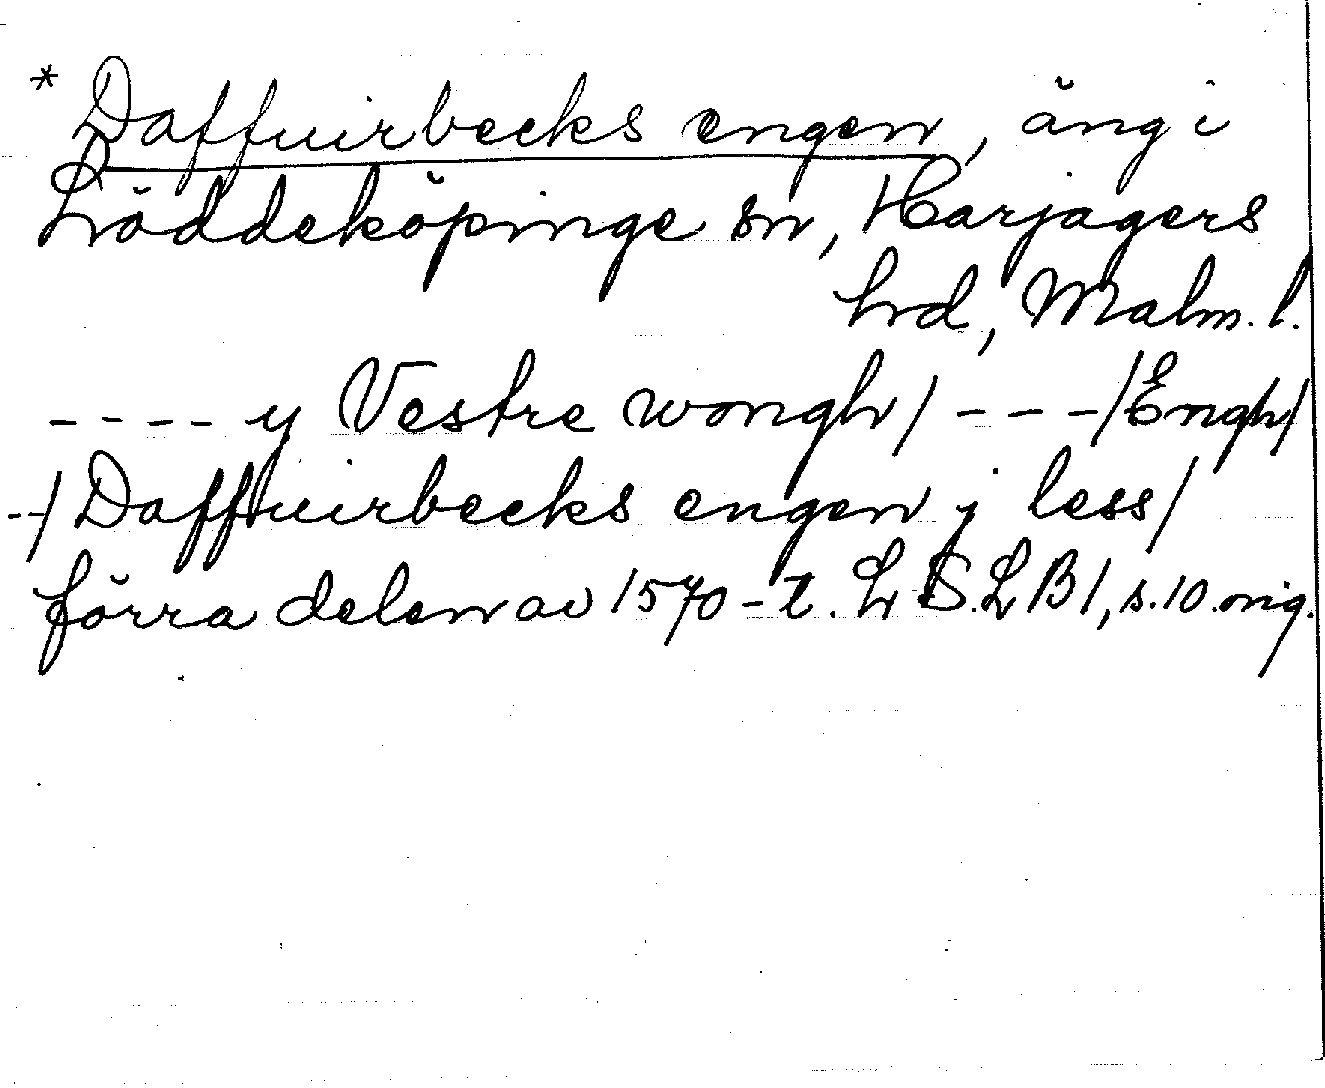 * Daffuirbecks engen, äng i
Löddeköpinge sn, Harjagers
hrd, Malm. l.
---- y Vestre wongh/ ---/Engh/
--/Daffuirbecks engen j less/
förra delen av 1570-t. LS.LB1, s.10.orig.